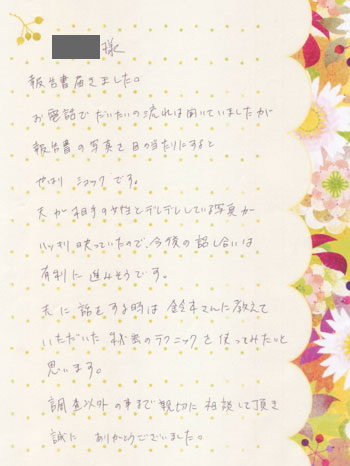 様
報告書届きました。
お電話でだいたいの流れは聞いていましたが
報告書の写真を目の当たりにすると
やはり ショックです。
夫が相手の女性とデレデレしている写真が
ハッキリ映っていたので、今後の話し合いは
有利に進みそうです。
夫に話をする時は 鈴木さんに教えて
いただいた 秘密のテクニックを使ってみたいと
思います。
調査以外の事まで親切に相談して頂き
誠に ありがとうございました。